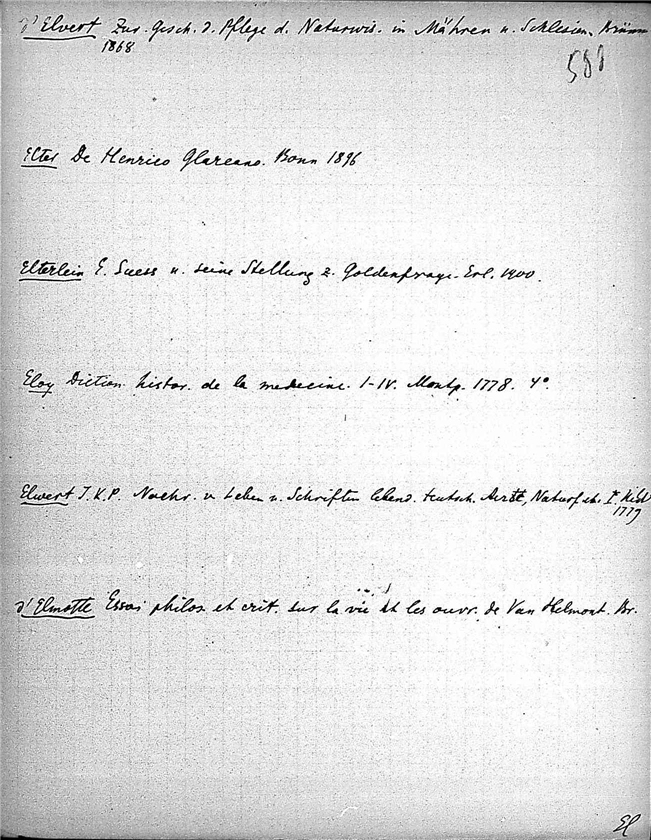 d'Elvert Zur Gesch. d. Pflege d. Naturwis. in Mähren u. Schlesien, Brünn
1868
588
Elter De Henrico Glareano. Bonn 1896
Elterlein E. Suess u. seine Stellung z. Goldenfrage. Erl. 1900.
Eloy Diction. histor. de la medecine. I-IV. Montp. 1778. 4°.
Elwert J.K.P. Nachr. v. Leben u. Schriften lebend. teutsch. Aerzte, Naturf. etc. I.
1779
d'Elmotte Essai philos. et crit. sur la vie et les ouvr. de Van Helmont. Br.
El